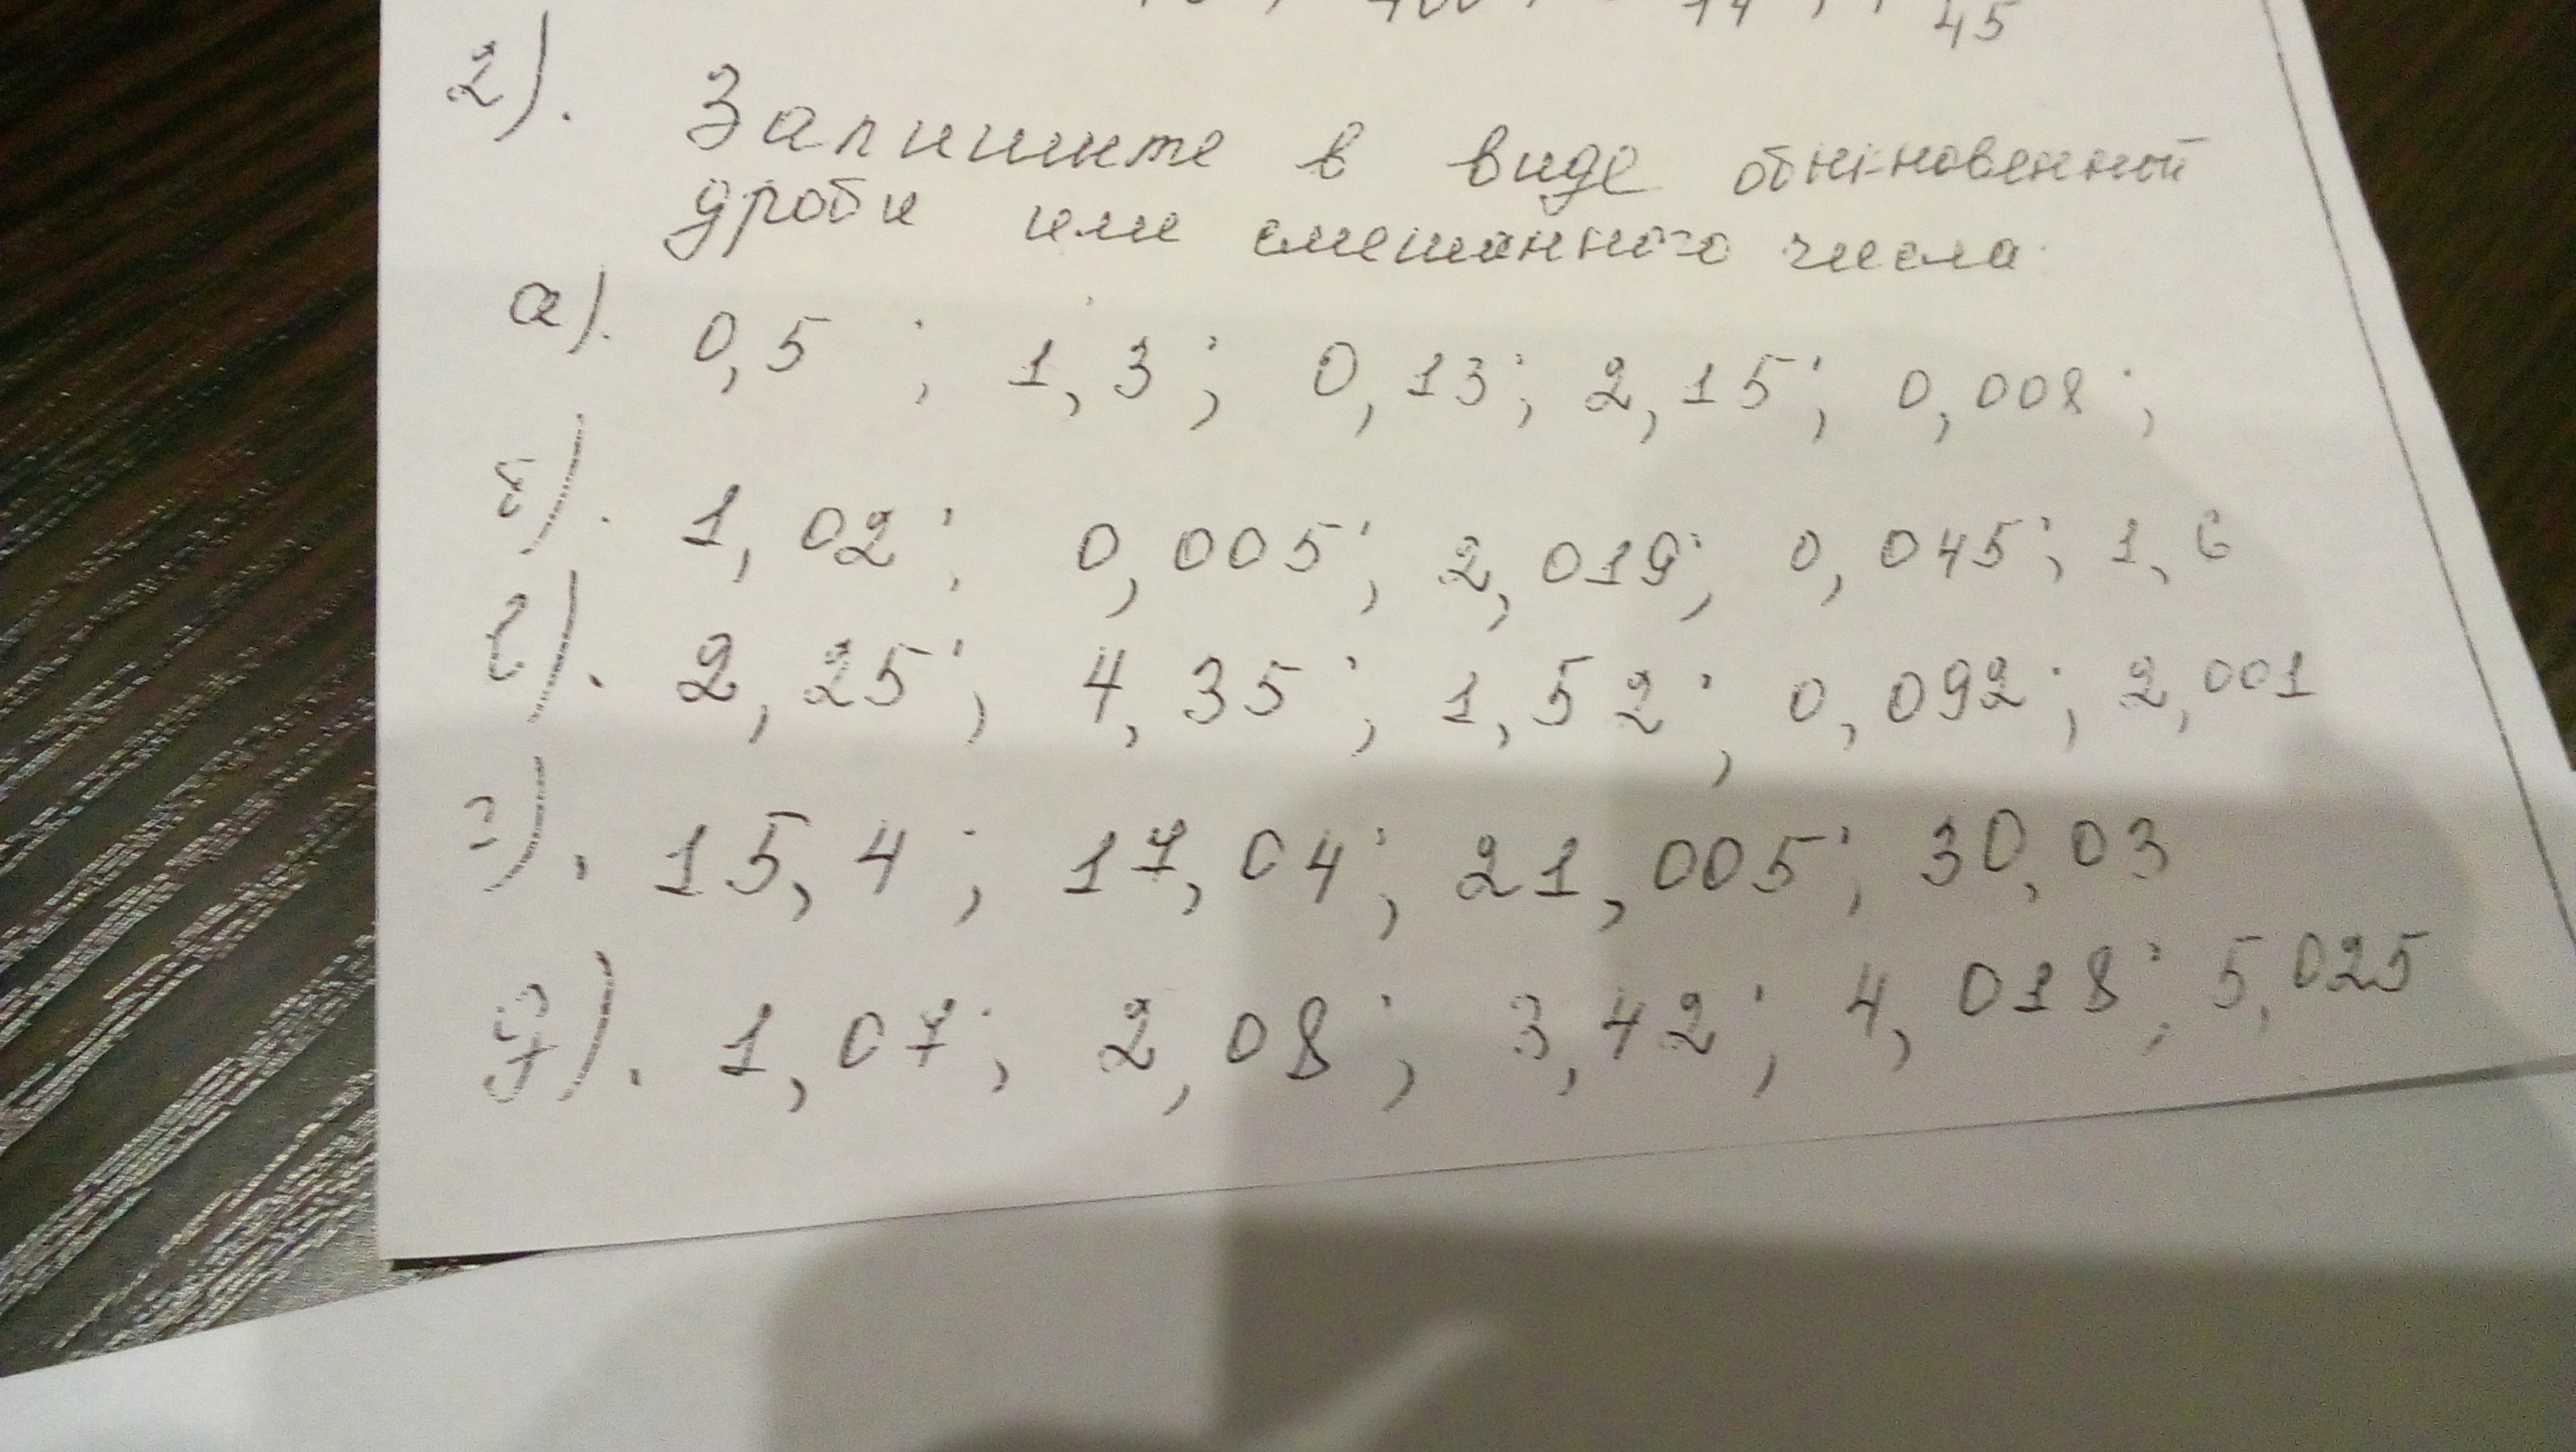 45
2). Запишите в виде обыкновенной
дроби или смешанного числа.
а). 0,5 ; 1,3 ; 0,13 ; 2,15 ; 0,008 ;
б). 1,02 ; 0,005 ; 2,019 ; 0,045 ; 1,6
в). 2,25 ; 4,35 ; 1,52 ; 0,092 ; 2,001
г). 15,4 ; 17,04 ; 21,005 ; 30,03
д). 1,07 ; 2,08 ; 3,42 ; 4,018 ; 5,025